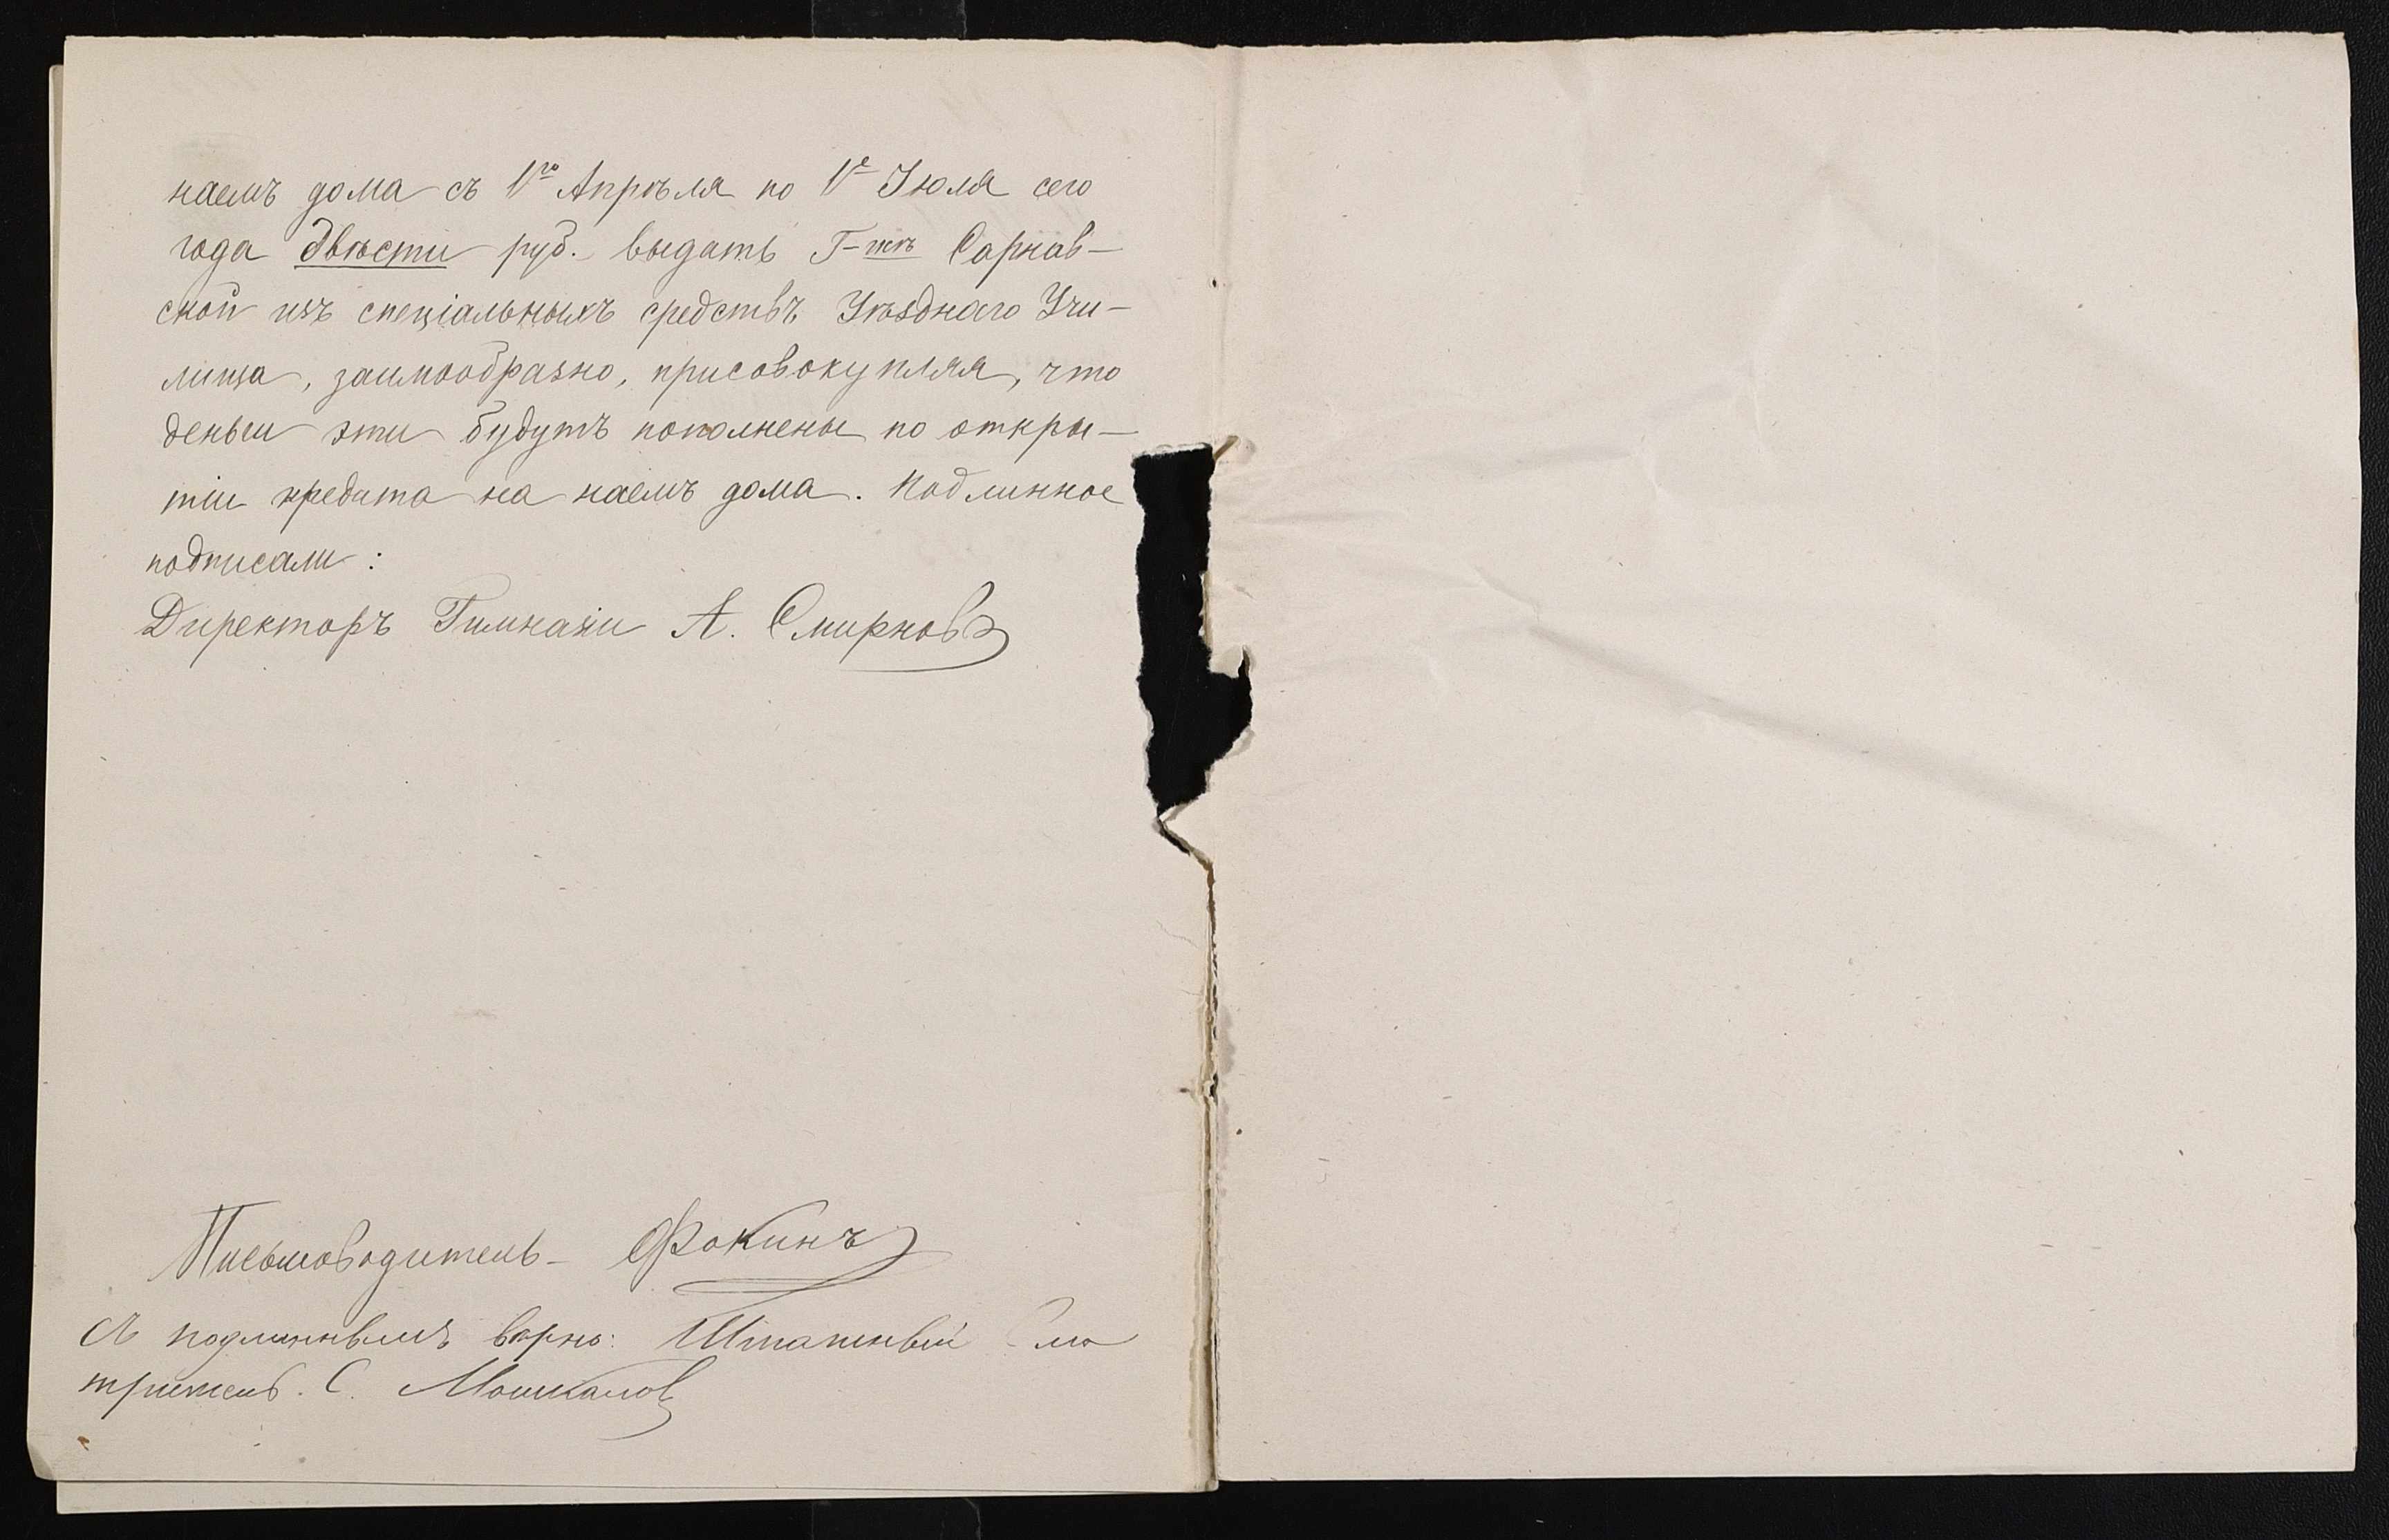 наемъ дома съ 1го Апрѣля по 1е Іюля сего
года двѣсти руб. выдать Г-жѣ Сарнав-
ской изъ спеціальныхъ средствъ Уѣзднаго Учи-
лища, заимообразно, присовокупляя, что
деньги эти будутъ пополнены по откры-
тіи кредита на наемъ дома. Подлинное
подписали:
Директоръ Гимназіи А. Смирновъ
Письмоводитель - Фокинъ
Съ подлиннымъ вѣрно: Штатный Смо
тритель. С. Мошкалов